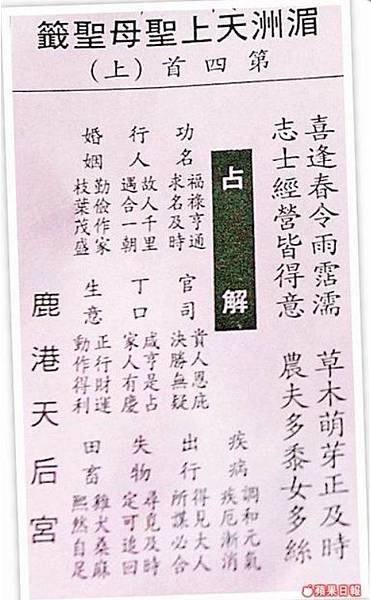 湄洲天上聖母聖籤
第四首(上)
喜逢春令雨霑濡 草木萌芽正及時
志士經營皆得意 農夫多黍女多絲
占解
功名 福祿亨通 求名及時
官司 貴人恩庇 決勝無疑
疾病 調和元氣 疾厄漸消
行人 故人千里 遇合一朝
丁口 咸亨是占 家人有慶
出行 得見大人 所謀必合
婚姻 勤儉作家 枝葉茂盛
生意 正行財運 動作得利
失物 尋覓及時 定可追回
田畜 雞犬桑麻 熙然自足
鹿港天后宮
蘋果日報